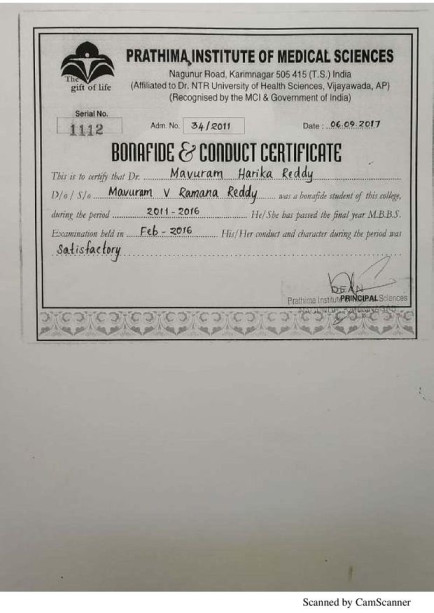 The
gift of life
PRATHIMA INSTITUTE OF MEDICAL SCIENCES
Nagunur Road, Karimnagar 505 415 (T.S.) India
(Affiliated to Dr. NTR University of Health Sciences, Vijayawada, AP)
(Recognised by the MCI & Government of India)
Serial No.
1112
Adm. No. 34/2011
Date : 06.09.2017
BONAFIDE & CONDUCT CERTIFICATE
This is to certify that Dr. Mavuram Harika Reddy
D/o / S/o Mavuram V Ramana Reddy was a bonafide student of this college,
during the period 2011-2016 He/She has passed the final year M.B.B.S.
Examination held in Feb-2016 His/Her conduct and character during the period was
Satisfactory
DEAN
PRINCIPAL
Prathima Institute Sciences
Scanned by CamScanner